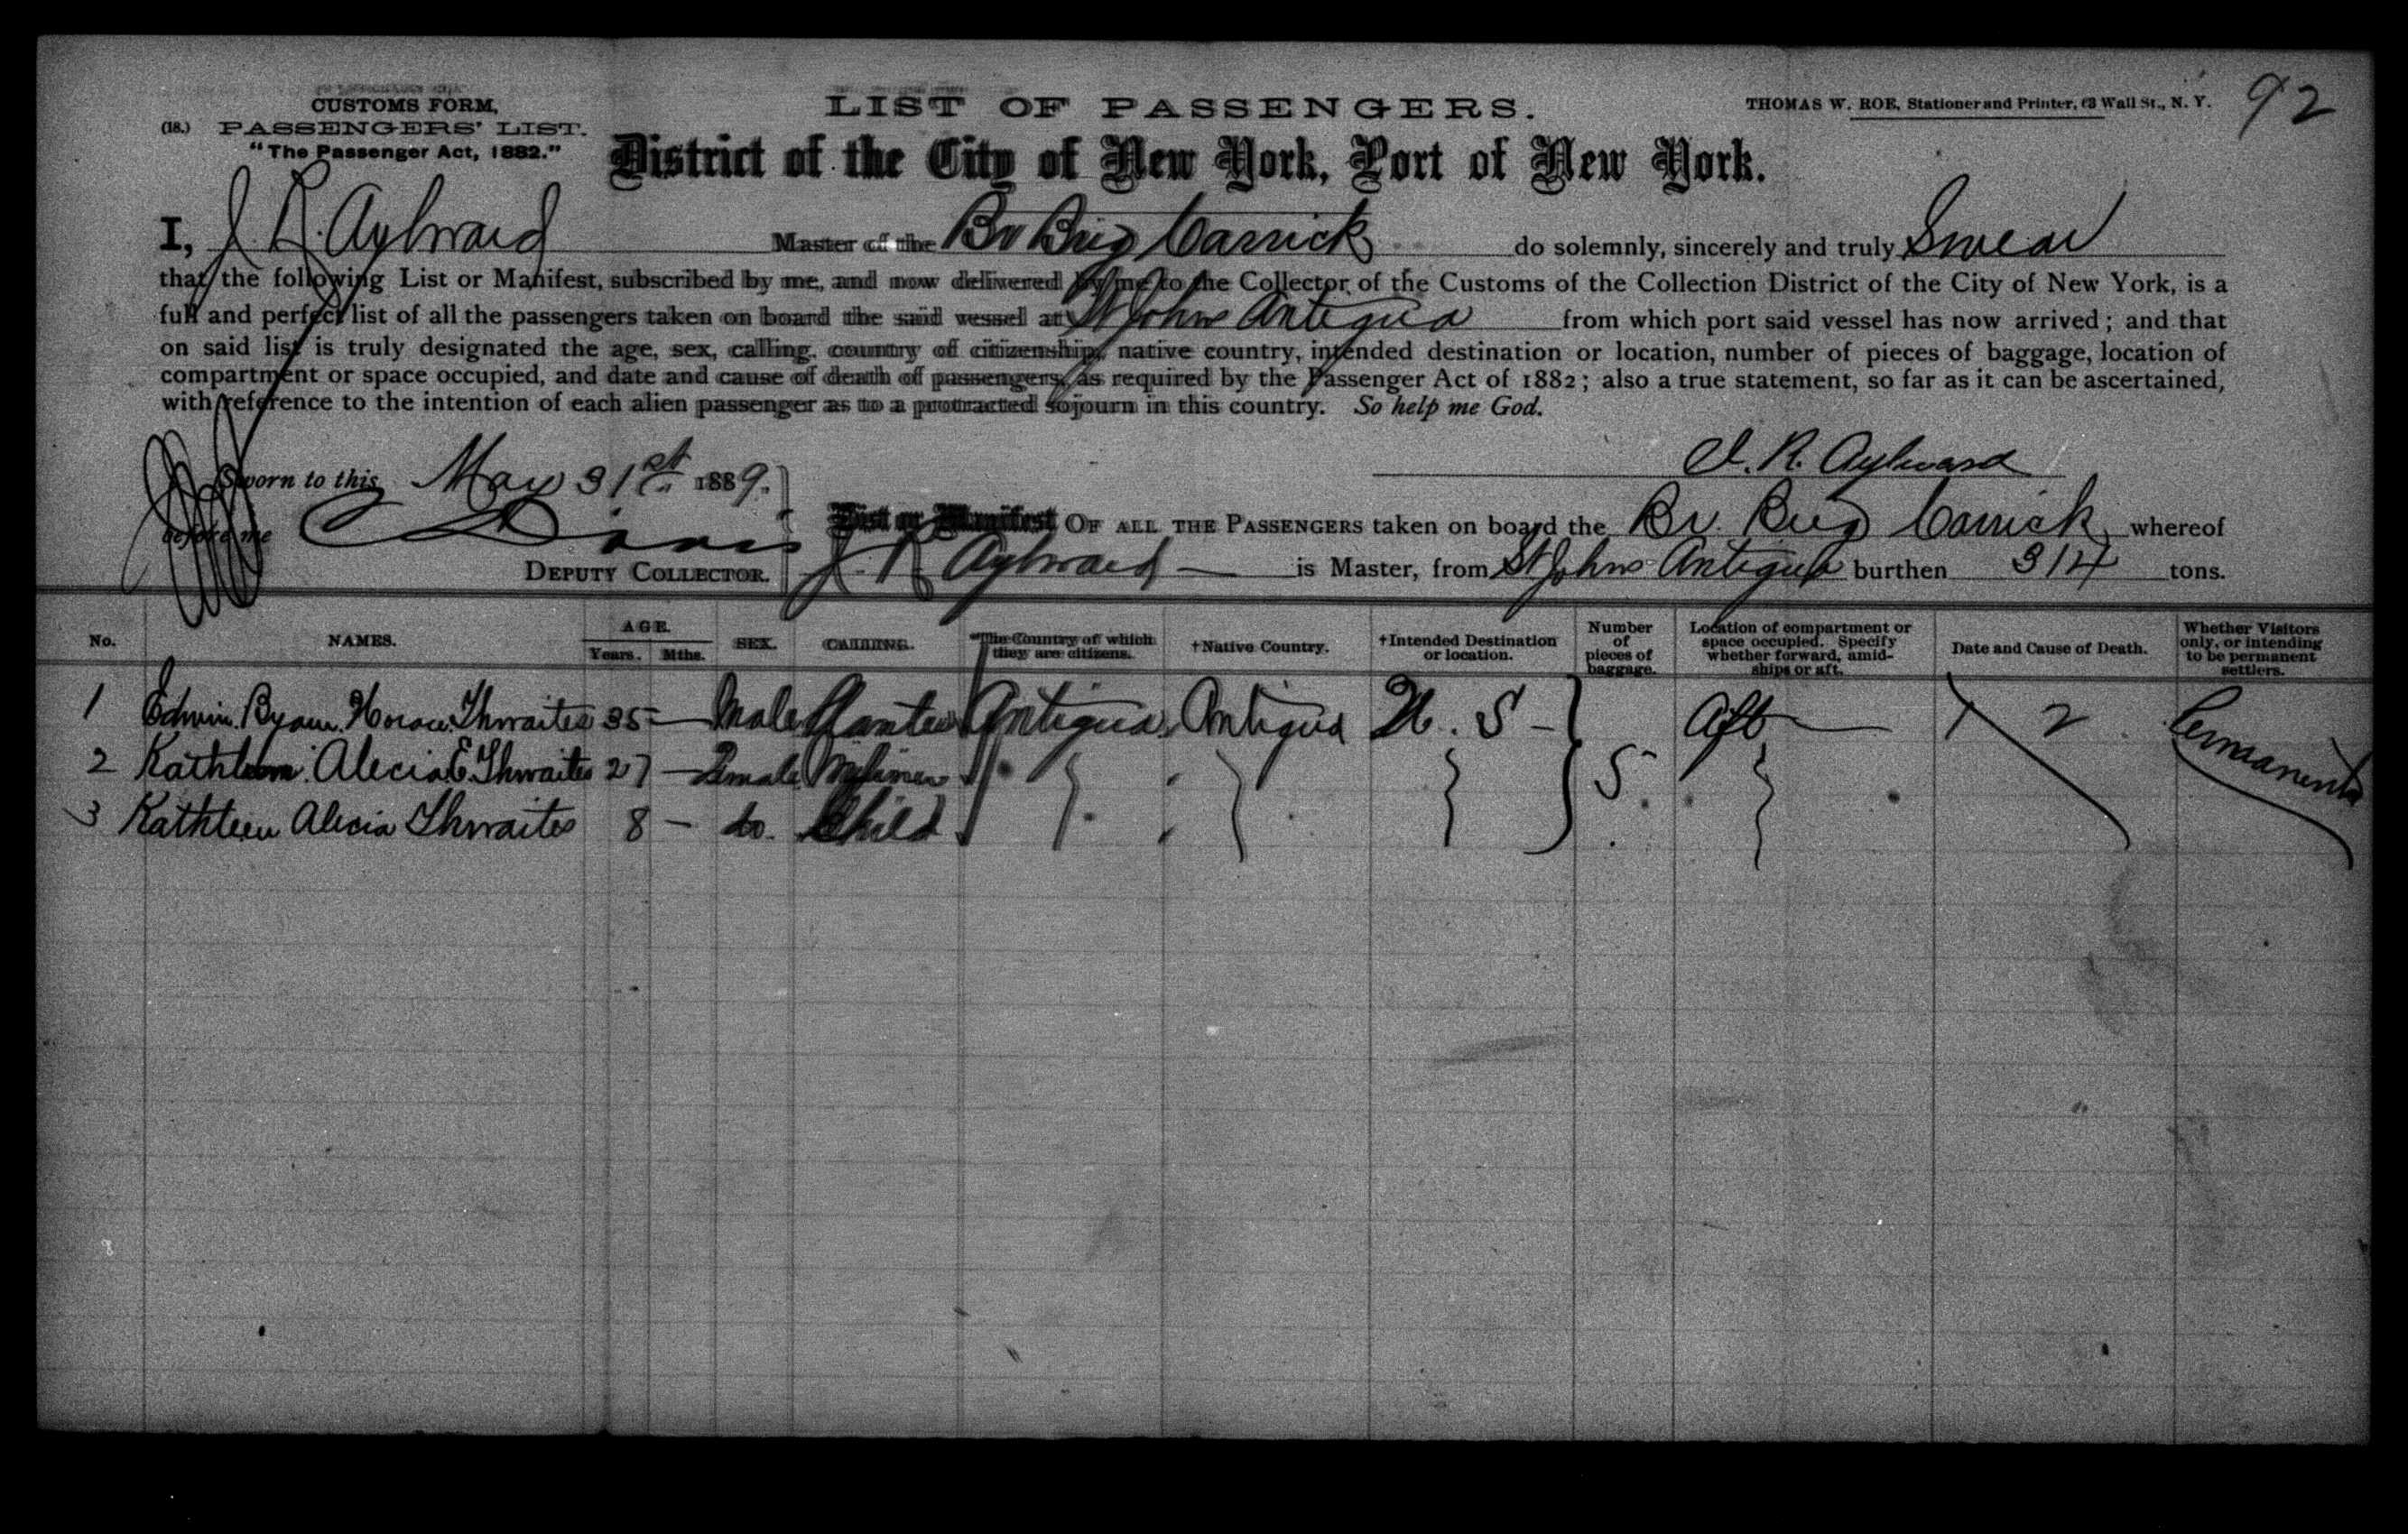 CUSTOMS FORM,
(18.) PASSENGERS' LIST.
"The Passenger Act, 1882."
LIST OF PASSENGERS.
THOMAS W. ROE, Stationer and Printer, 63 Wall St., N. Y.
92
District of the City of New York, Port of New York.
I, J. R. Aylward Master of the Br Brig Carrick do solemnly, sincerely and truly Swear
that the following List or Manifest, subscribed by me, and now delivered by me to the Collector of the Customs of the Collection District of the City of New York, is a
full and perfect list of all the passengers taken on board the said vessel at St Johns Antigua from which port said vessel has now arrived; and that
on said list is truly designated the age, sex, calling, country of citizenship, native country, intended destination or location, number of pieces of baggage, location of
compartment or space occupied, and date and cause of death of passengers, as required by the Passenger Act of 1882; also a true statement, so far as it can be ascertained,
with reference to the intention of each alien passenger as to a protracted sojourn in this country. So help me God.
J. R. Aylward
Sworn to this May 31st 1889.
before me C Davis
DEPUTY COLLECTOR.
List or Manifest OF ALL THE PASSENGERS taken on board the Br. Brig Carrick whereof
J. R. Aylward is Master, from St Johns Antigua burthen 314 tons.
No. NAMES. AGE. Years. Mths. SEX. CALLING. *The Country of which they are citizens. †Native Country. †Intended Destination or location. Number of pieces of baggage. Location of compartment or space occupied. Specify whether forward, amidships or aft. Date and Cause of Death. Whether Visitors only, or intending to be permanent settlers.
1 Edwin Byam Horace Thwaites 35 — Male Planter Antigua Antigua U. S — Aft 2 Permanent
2 Kathleen Alecia E Thwaites 27 — Female 5
3 Kathleen Alecia Thwaites 8 — do. Child